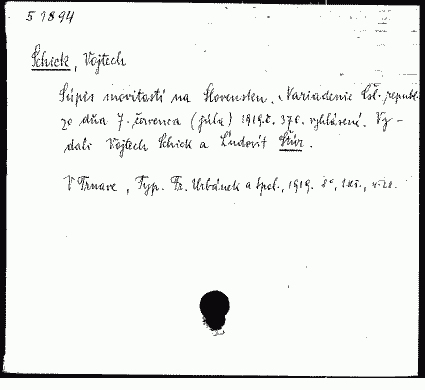 51894
Schick, Vojtech
Súpis movitostí na Slovensku. Nariadenie čsl. republ.
zo dňa 7. červenca (júla) 1919 č. 376. vyhlásené. Vy-
dali Vojtech Schick a Ľudovít Štúr.
V Trnave, Typ. Fr. Urbánek a spol., 1919. 8°,